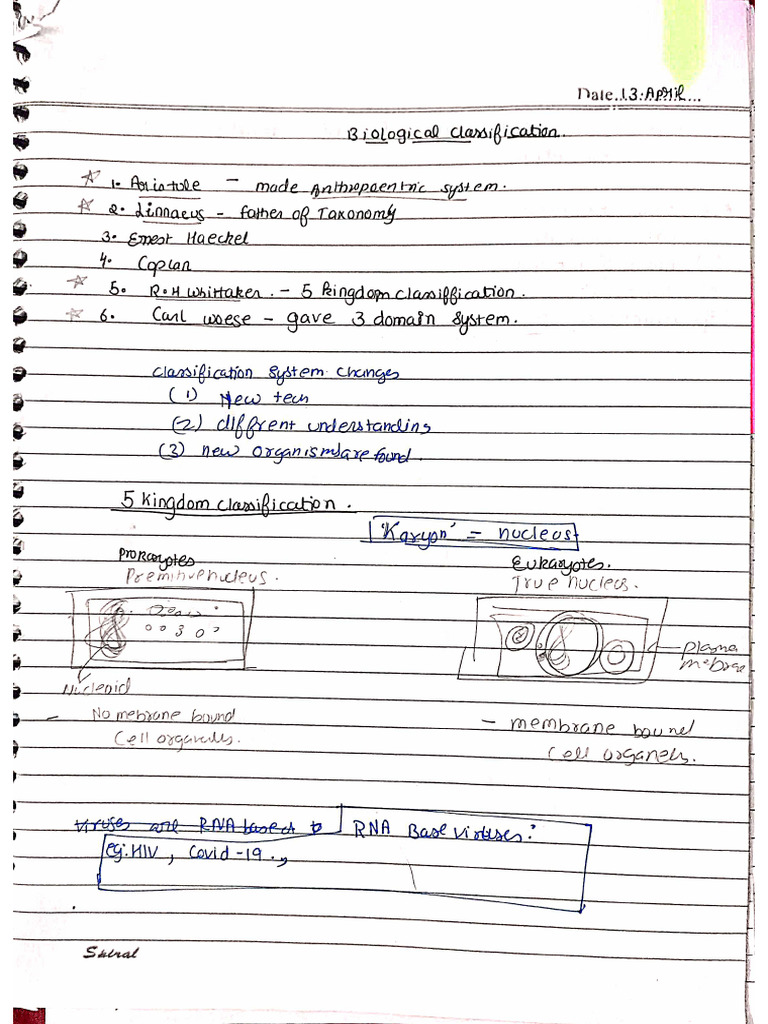 Date. 13. April...
Biological classification.
1. Aristole - made Anthropoentric system.
2. Linnaeus - father of Taxonomy
3. Ernest Haeckel
4. Coplan
5. R.H Whittaker. - 5 kingdom classiffication.
6. Carl woese - gave 3 domain system.
classification system changes
(1) New tech
(2) diffrent understanding
(3) new organism are found.
5 kingdom classification.
'Karyon' = nucleus
Prokaryotes
Eukaryotes.
Premitive nucleus.
True nucleus.
plasma
mebrane
Nucleoid
No mebrane bound
cell organells.
- membrane bound
cell organels.
Viruses are RNA based to
RNA Base viruses:
eg: HIV, Covid-19.,